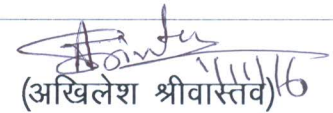 1/11/16
(अखिलेश श्रीवास्तव)